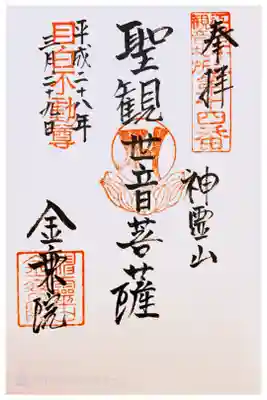 奉拝
四番
神霊山
聖観世音菩薩
平成二十八年
三月二十九日
目白不動尊
金乗院